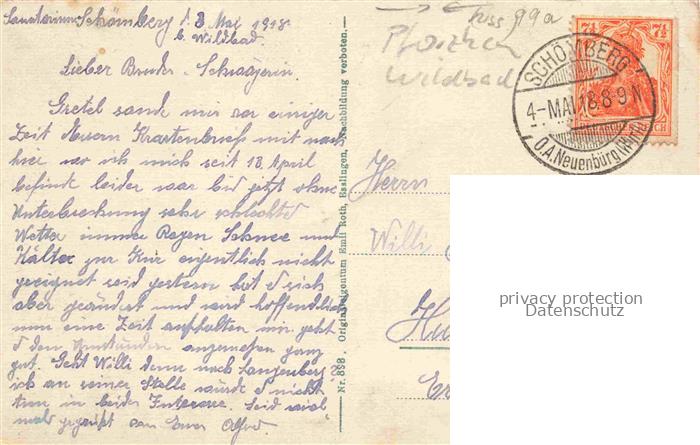 Sanatorium Schömberg d 3 Mai 1918
b. Wildbad.
Lieber Bruder Schwägerin.
Gretel sandte mir vor einiger
Zeit Euern Kartenbrief mit nach
hier wo ich mich seit 18. April
befinde leider war bis jetzt ohne
Unterbrechung sehr schlechtes
Wetter immer Regen Schnee und
Kälte zur Kur eigentlich nicht
geeignet seid gestern hat d sich
aber geändert und wird hoffendlich
nun eine Zeit anhalten mir geht
d den Umständen angemessen ganz
gut. Geht Willi denn nach Langenberg?
ich an seiner Stelle würde d nicht
tun in beider Interesse. Seid viel
mals gegrüßt von Euer Alfred
Nr. 898. Original-Eigentum Emil Roth, Esslingen, Nachbildung verboten.
99a
Pforzheim
Wildbad
7½ 7½
SCHÖMBERG
4-MAI.18.8-9 N
O.A. Neuenbürg (Württ)
Herrn
Willi
privacy protection
Datenschutz